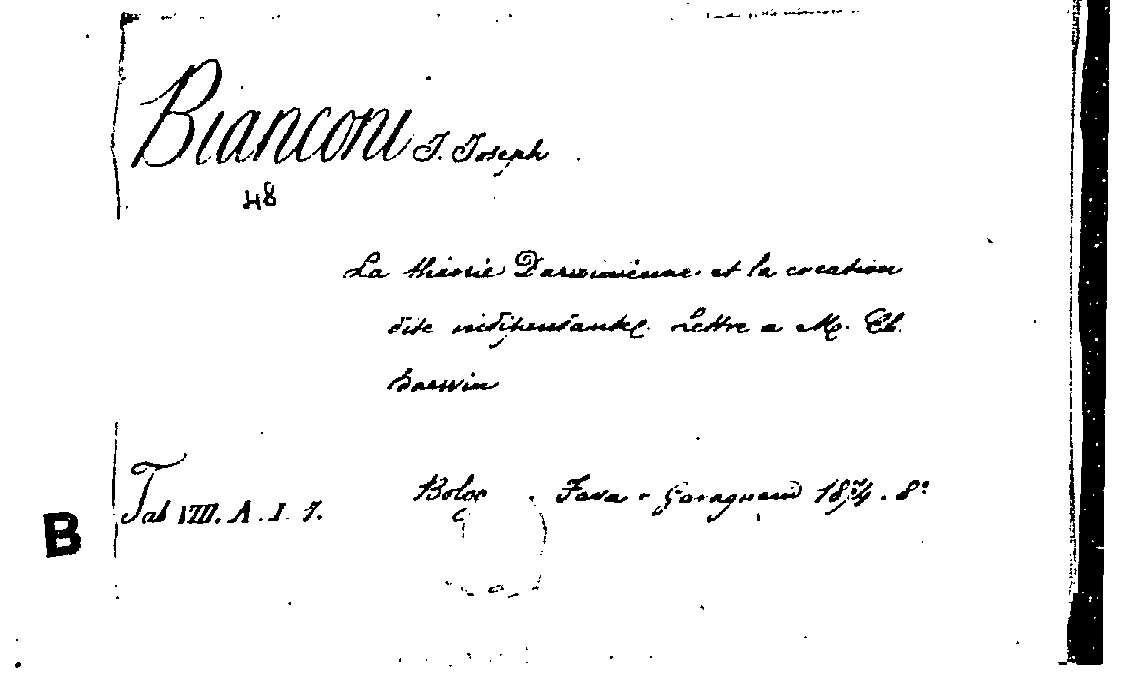 Bianconi J. Joseph
48
La théorie Darwinienne et la création
dite indépendante. Lettre a M. Ch.
Darwin
Tab VIII. A. I. 7.
Bolog . Fava e Garagnani 1874. 8º
B